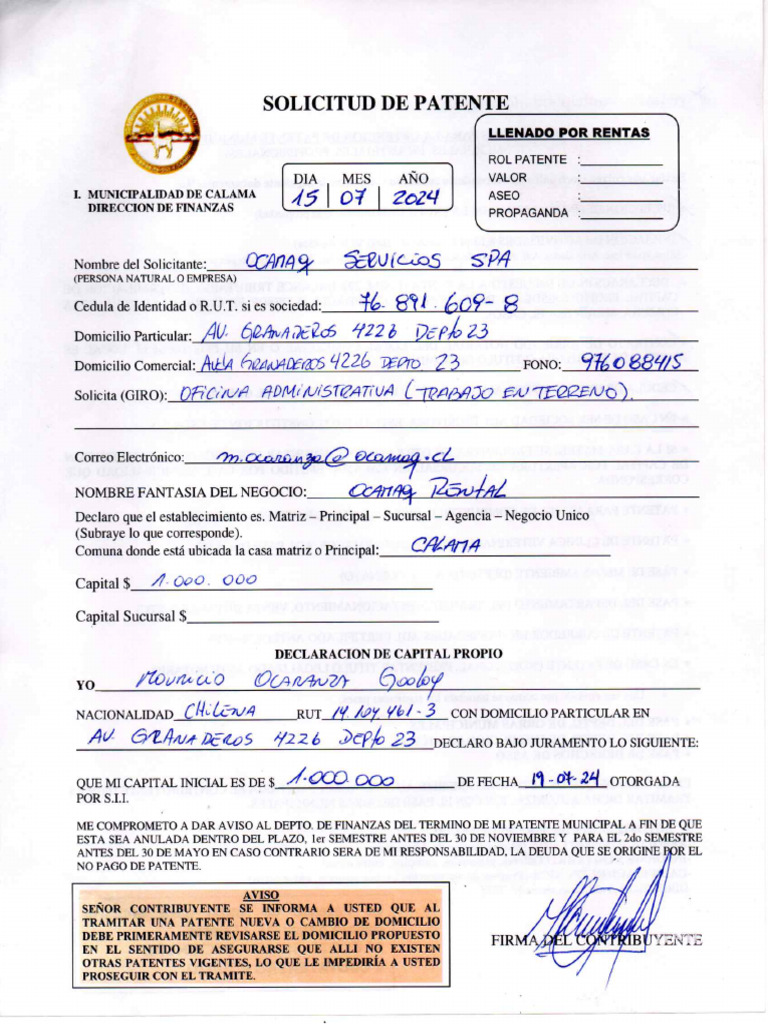 SOLICITUD DE PATENTE
LLENADO POR RENTAS
ROL PATENTE :
VALOR :
ASEO :
PROPAGANDA :
DIA MES AÑO
15 07 2024
I. MUNICIPALIDAD DE CALAMA
DIRECCION DE FINANZAS
Nombre del Solicitante: OCAMAQ SERVICIOS SPA
(PERSONA NATURAL O EMPRESA)
Cedula de Identidad o R.U.T. si es sociedad: 76.891.609-8
Domicilio Particular: AV. GRANADEROS 4226 DEPTO 23
Domicilio Comercial: GRANADEROS 4226 DEPTO 23 FONO: 976088415
Solicita (GIRO): OFICINA ADMINISTRATIVA (TRABAJO EN TERRENO).
Correo Electrónico: m.ocaranza@ocamaq.cl
NOMBRE FANTASIA DEL NEGOCIO: OCAMAQ RENTAL
Declaro que el establecimiento es. Matriz – Principal – Sucursal – Agencia – Negocio Unico
(Subraye lo que corresponde).
Comuna donde está ubicada la casa matriz o Principal: CALAMA
Capital $ 1.000.000
Capital Sucursal $
DECLARACION DE CAPITAL PROPIO
YO MAURICIO OCARANZA Godoy
NACIONALIDAD CHILENA RUT 14.104.461-3 CON DOMICILIO PARTICULAR EN
AV. GRANADEROS 4226 DEPTO 23 DECLARO BAJO JURAMENTO LO SIGUIENTE:
QUE MI CAPITAL INICIAL ES DE $ 1.000.000 DE FECHA 19-07-24 OTORGADA
POR S.I.I.
ME COMPROMETO A DAR AVISO AL DEPTO. DE FINANZAS DEL TERMINO DE MI PATENTE MUNICIPAL A FIN DE QUE
ESTA SEA ANULADA DENTRO DEL PLAZO, 1er SEMESTRE ANTES DEL 30 DE NOVIEMBRE Y PARA EL 2do SEMESTRE
ANTES DEL 30 DE MAYO EN CASO CONTRARIO SERA DE MI RESPONSABILIDAD, LA DEUDA QUE SE ORIGINE POR EL
NO PAGO DE PATENTE.
AVISO
SEÑOR CONTRIBUYENTE SE INFORMA A USTED QUE AL
TRAMITAR UNA PATENTE NUEVA O CAMBIO DE DOMICILIO
DEBE PRIMERAMENTE REVISARSE EL DOMICILIO PROPUESTO
EN EL SENTIDO DE ASEGURARSE QUE ALLI NO EXISTEN
OTRAS PATENTES VIGENTES, LO QUE LE IMPEDIRÍA A USTED
PROSEGUIR CON EL TRAMITE.
FIRMA DEL CONTRIBUYENTE